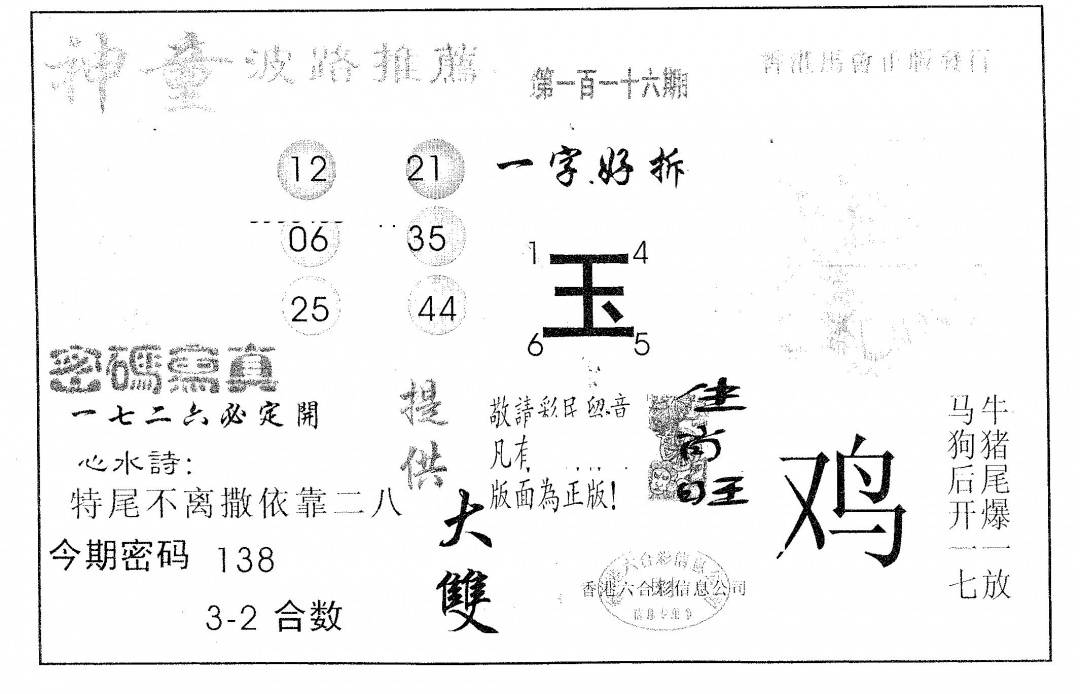 神童波路推薦
第一百一十六期
12 21
06 35
25 44
一字好拆
1 4
玉
6 5
密碼寫真
一七二六必定開
心水詩:
特尾不离撒依靠二八
今期密码 138
3-2 合数
提供
大雙
敬請彩民 音
凡有
版面為正版!
香港六合彩信息公司
鸡
牛猪尾爆一放
马狗后开一七